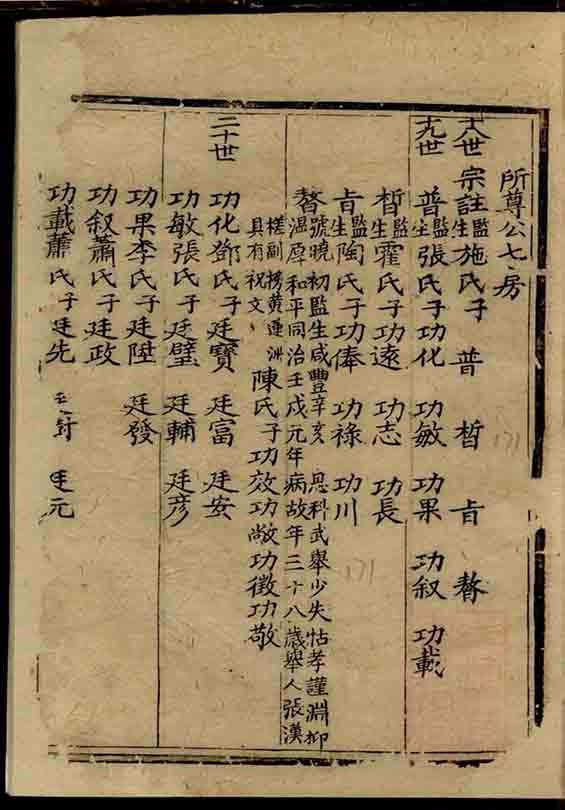 所尊公七房
十八世 宗註監生施氏子 普 晳 㫖 瞀
十九世 普監生張氏子功化 功敏 功果 功叙 功載
晳監生霍氏子功遠 功志 功長
㫖監生陶氏子功俸 功祿 功川
號曉初監生咸豐辛亥 恩科武舉少失怙孝謹淵抑
溫厚和平同治壬戌元年病故年三十八歲舉人張漢
槎副榜黃蓮洲
具有祝文
陳氏子功效功敞功徵功敬
二十世 功化鄧氏子廷寶 廷富 廷安
功敏張氏子廷璧 廷輔 廷彦
功果李氏子廷陞 廷發
功叙蕭氏子廷政
功載蕭氏子廷先 廷元
171
171